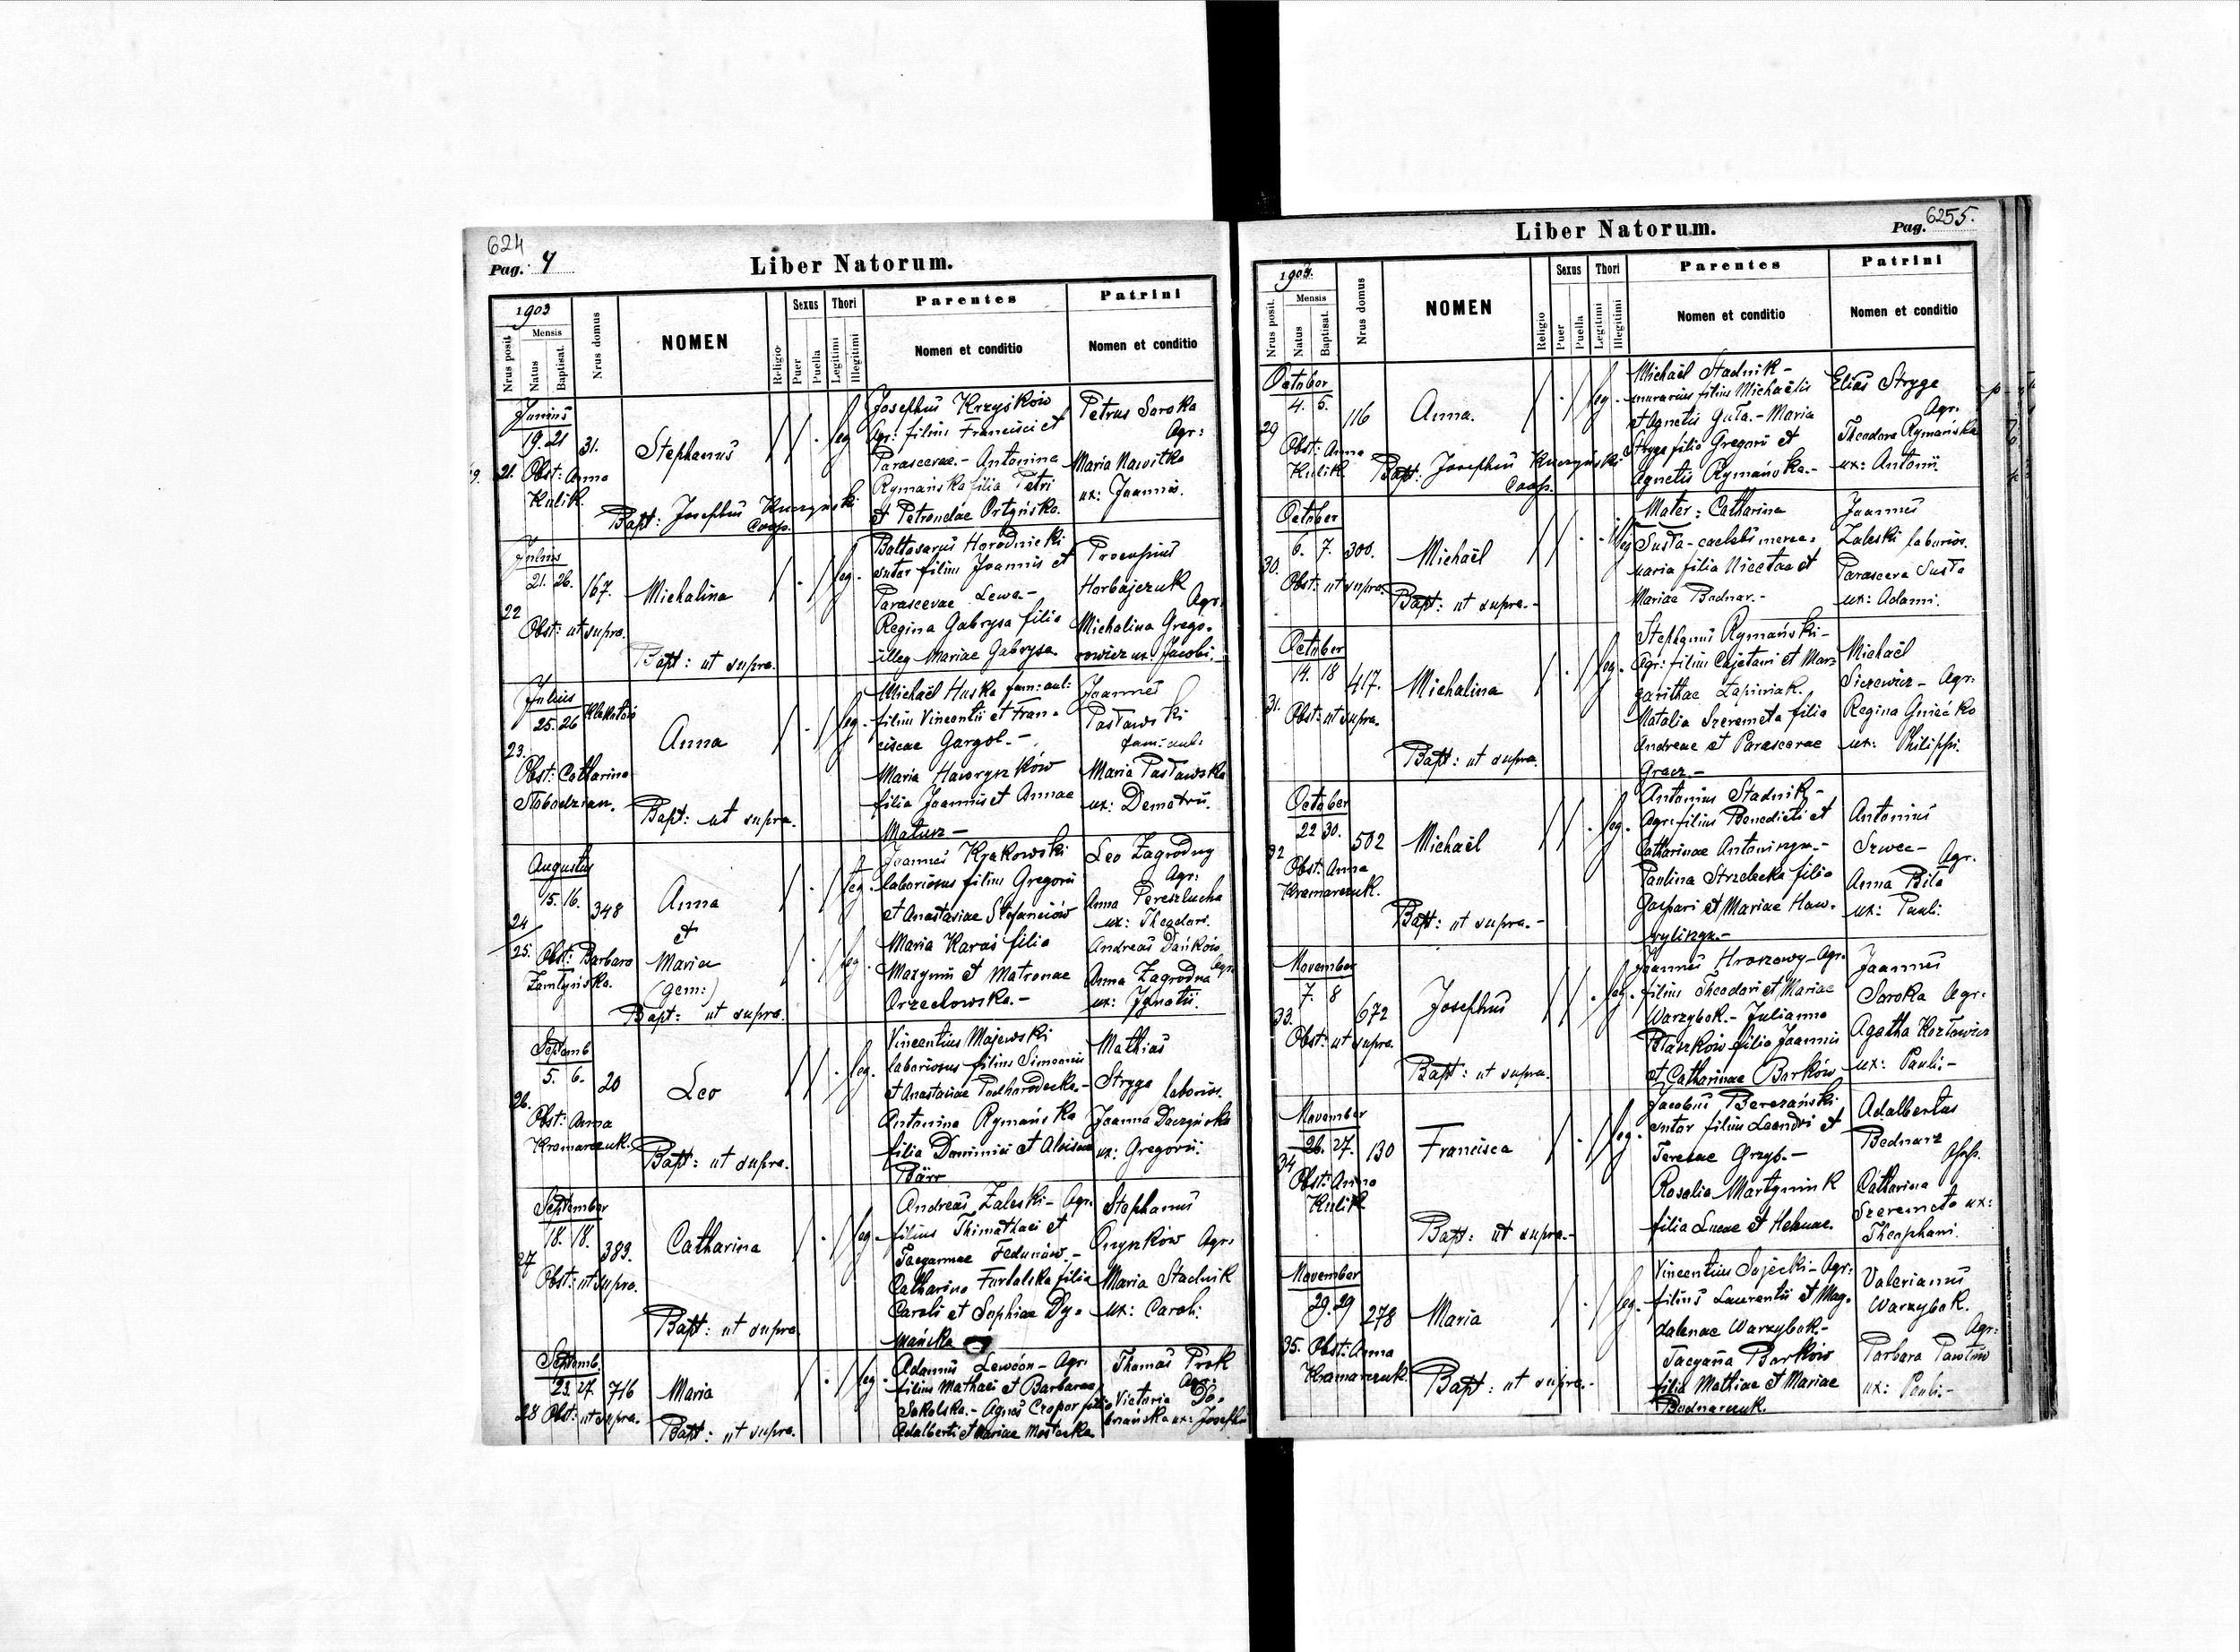 624
Pag. 4
Liber Natorum.
1903
Nrus posit.
Mensis
Natus
Baptisat.
Nrus domus
NOMEN
Religio
Sexus
Puer
Puella
Thori
Legitimi
Illegitimi
Parentes
Nomen et conditio
Patrini
Nomen et conditio
Junius
19. 21
31.
21. Obst: Anna
Kulik.
Stephanus
leg
Bapt: Josephus Kuczyński
Coop.
Josephus Krzyśków
Agr: filius Francisci et
Parascevae.- Antonina
Rymańska filia Petri
et Petronelae Ortyńska.
Petrus Soroka
Agr:
Maria Nawitka
ux: Joannis.
Julius
21. 26.
167.
22
Obst: ut supra.
Michalina
leg.
Bapt: ut supra.
Baltasarus Horodnicki
sutor filius Joannis et
Parascevae Lewa-
Regina Gabrysa filia
illeg Mariae Gabrysa.
Procopius
Horbajczuk
Agr.
Michalina Grego-
rowicz ux: Jacobi.
Julius
25. 26
23.
Obst: Catharina
Słobodzian.
Anna
leg.
Bapt: ut supra.
Michaël Huska fam: aul:
filius Vincentii et Fran-
ciscae Gargol.-
Maria Hawryszków
filia Joannis et Annae
Matusz-
Joannes
Pasławski
fam: aul:
Maria Pasławska
ux: Demetrii.
Augustus
15. 16.
348
24
25. Obst: Barbara
Zamłyńska.
Anna
et
Maria
(gem:)
leg.
leg.
Bapt: ut supra.
Joannes Krakowski
laboriosus filius Gregorii
et Anastasiae Stefanciów
Maria Karaś filia
Mazymi et Matronae
Orzechowska.-
Leo Zagrodny
Agr:
Anna Pereszlucha
ux: Theodori.
Andreas Dańków
Agr.
Anna Zagrodna
ux: Ignatii.
Septemb.
5. 6.
20
26.
Obst: Anna
Kramarczuk.
Leo
leg.
Bapt: ut supra.
Vincentius Majewski
laboriosus filius Simeonis
et Anastasiae Podhorodecka.-
Antonina Rymańska
filia Dominici et Aloisae
Bärr
Mathias
Stryga
laborios.
Joanna Daczyńska
ux: Gregorii.
September
18. 18.
383.
27
Obst: ut supra.
Catharina
leg.
Bapt: ut supra.
Andreas Zaleski- Agr.
filius Thimothaei et
Tacyannae Fedunów.-
Catharina Furtalska filia
Caroli et Sophiae Dy-
mańska
Stephanus
Onyszków Agr.
Maria Stadnik
ux: Caroli.
Septemb.
23. 27.
716
28 Obst: ut supra.
Maria
leg.
Bapt: ut supra.
Adamus Lewcón- Agr.
filius Mathaei et Barbarae
Sokolska.- Agnes Czopor filia
Adalberti et Mariae Mostecka
Thomas Prok
Agr.
Victoria Do-
briańska ux: Josephi
6255.
Pag.
Liber Natorum.
1903.
Nrus posit.
Mensis
Natus
Baptisat.
Nrus domus
NOMEN
Religio
Sexus
Puer
Puella
Thori
Legitimi
Illegitimi
Parentes
Nomen et conditio
Patrini
Nomen et conditio
October
4. 5.
116
29
Obst: Anna
Kulik.
Anna.
leg.
Bapt: Josephus Kuczyński
Coop.
Michaël Stadnik-
murarius filius Michaëlis
et Agnetis Guła.- Maria
Stryga filia Gregorii et
Agnetis Rymańska.-
Elias Stryga
Agr.
Theodora Rymańska
ux: Antonii.
October
6. 7.
300.
30.
Obst: ut supra.
Michaël
Illeg
Bapt: ut supra.-
Mater: Catharina
Susła- caelebs merce-
naria filia Nicetae et
Mariae Bednar.-
Joannes
Zaleski laborios.
Parasceva Susła
ux: Adami.
October
14. 18
417.
31.
Obst: ut supra.
Michalina
leg.
Bapt: ut supra.
Stephanus Rymański-
Agr: filius Cajetani et Mar-
garithae Łapiniak.
Natalia Szeremeta filia
Andreae et Parascevae
Gracz.-
Michaël
Siczewicz- Agr:
Regina Gniećko
ux: Philippi.
October
22 30.
502
32
Obst: Anna
Kramarczuk.
Michaël
leg.
Bapt: ut supra.-
Antonius Stadnik-
Agr: filius Benedicti et
Catharinae Antoniszyn.-
Paulina Strzelecka filia
Gaspari et Mariae Haw-
ryliszyn.-
Antonius
Szwec-
Agr.
Anna Biła
ux: Pauli.
November
7. 8
672
33.
Obst: ut supra.
Josephus
leg.
Bapt: ut supra.
Joannes Hroszowy- Agr.
filius Theodori et Mariae
Warzybok.- Julianna
Błaszków filia Joannis
et Catharinae Barków
Joannes
Soroka Agr.
Agatha Kozłowicz
ux: Pauli.-
November
26. 27.
130
34
Obst: Anna
Kulik
Francisca
leg.
Bapt: ut supra.-
Jacobus Berezański
sutor filius Leandri et
Teresae Grzyb.-
Rosalia Martyniuk
filia Lucae et Helenae.
Adalbertus
Bednarz
Catharina
Szeremeta ux:
Theophani.
November
29. 29
278
35. Obst: Anna
Kramarczuk.
Maria
leg.
Bapt: ut supra.-
Vincentius Sajecki- Agr:
filius Laurentii et Mag-
dalenae Warzybok.-
Tacyana Barków
filia Mathiae et Mariae
Bednarczuk.
Valerianus
Warzybok.
Agr:
Barbara Pawłów
ux: Pauli.-